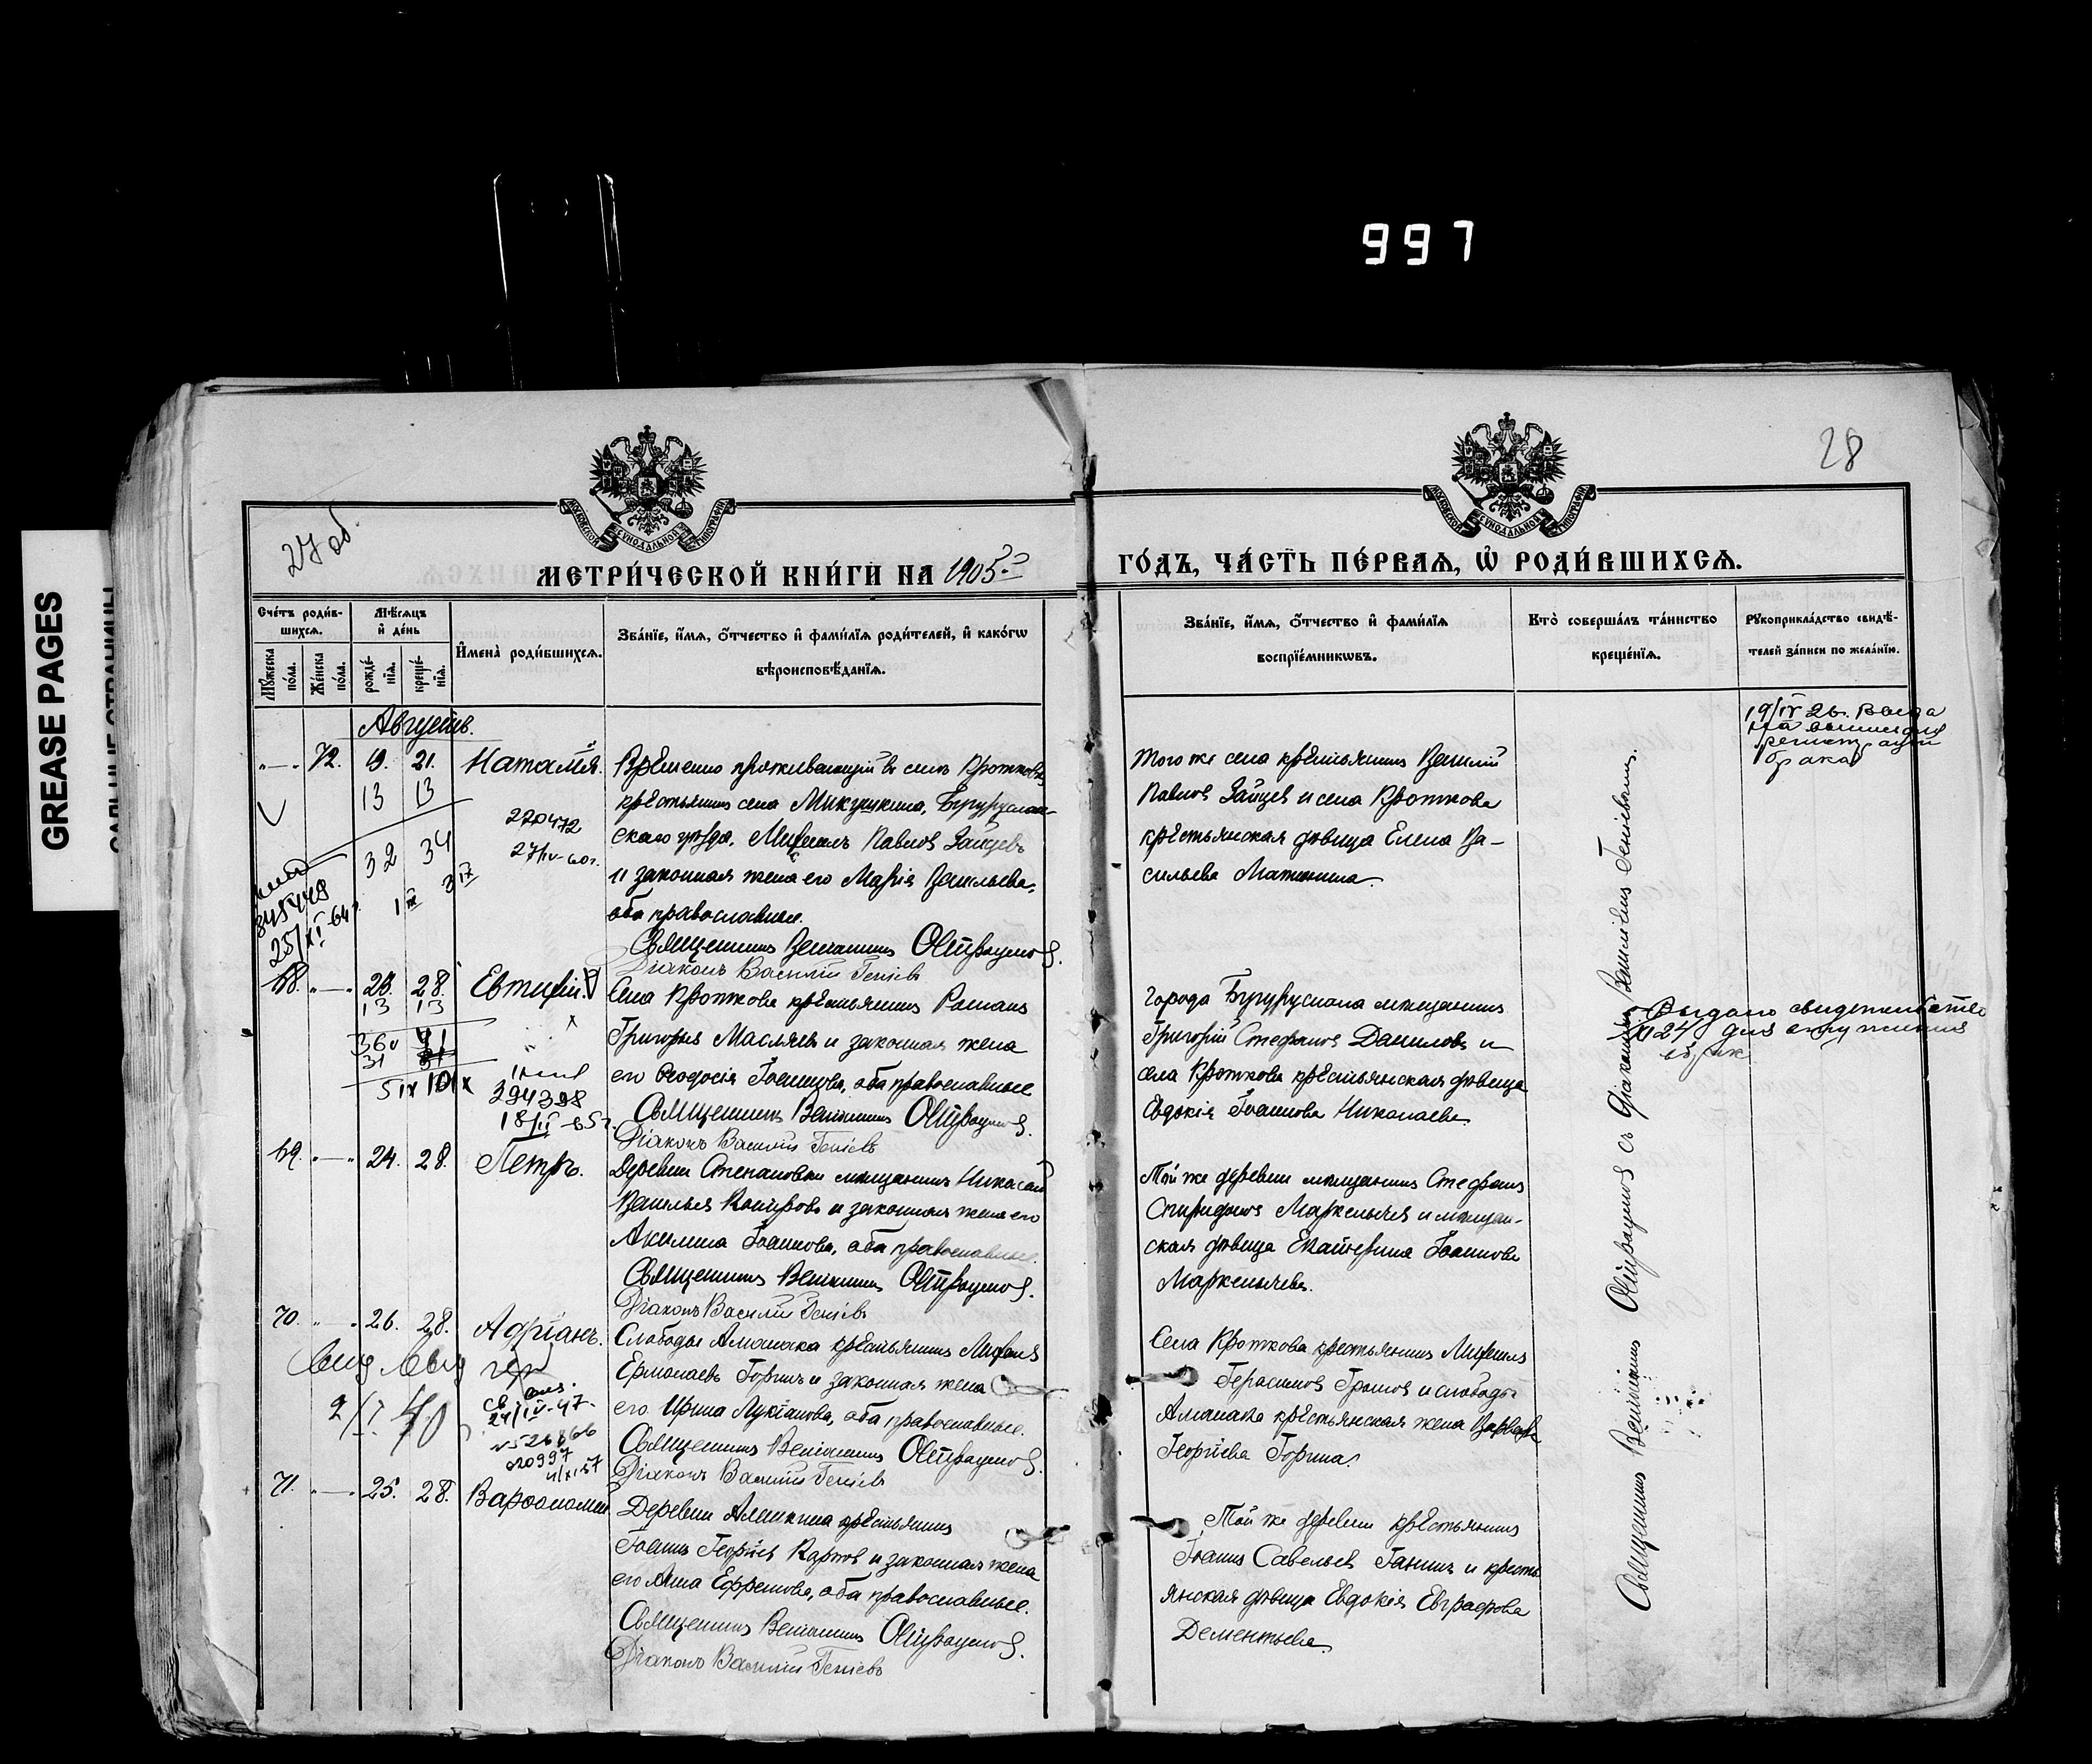 997
GREASE PAGES
28
27 об.
МОСКОВСКОЙ СѴНОДАЛЬНОЙ ТИПОГРАФІИ
МОСКОВСКОЙ СѴНОДАЛЬНОЙ ТИПОГРАФІИ
МЕТРИ́ЧЕСКОЙ КНИ́ГИ НА 1905
ГО́ДЪ, ЧА́СТЬ ПЕ́РВАѦ, Ѿ РОДИ́ВШИХСѦ.
Сче́тъ роди́в-
шихсѧ.
Мꙋ́жеска по́ла.
Же́нска по́ла.
Мѣ́сѧцъ
и҆ де́нь
рожде́-
нїѧ.
креще́-
нїѧ.
И҆мена̀ роди́вшихсѧ.
Зва́нїе, и҆́мѧ, ѻ҆́тчество и҆ фами́лїѧ роди́телей, и҆ како́гѡ
вѣроисповѣ́данїѧ.
Зва́нїе, и҆́мѧ, ѻ҆́тчество и҆ фами́лїѧ
воспрїе́мникѡвъ.
Кто̀ соверша́лъ та́инство
креще́нїѧ.
Рꙋкоприкла́дство свидѣ́-
телей за́писи по жела́нїю.
Августъ.
" — " 72. 19. 21. Наталія.
Временно проживающій въ селѣ Кротковѣ
крестьянинъ села Микушкина, Бугуруслан-
скаго уѣзда, Михаилъ Павловъ Зайцевъ
и законная жена его Марія Васильева,
оба православные.
Священникъ Веніаминъ Остроумовъ.
Діаконъ Василій Геніевъ
Того же села крестьянинъ Василій
Павловъ Зайцевъ и села Кроткова
крестьянская дѣвица Елена Ва-
сильева Матюнина.
13 13
32 34
270472
27/IV-60г.
348448
25/XI-64
19/IV 26.
брака
68. " — " 23. 28. Евтихій.
Села Кроткова крестьянинъ Романъ
Григорьевъ Масляевъ и законная жена
его Ѳеодосія Іоаннова, оба православные
Священникъ Веніаминъ Остроумовъ.
Діаконъ Василій Геніевъ
Города Бугуруслана мѣщанинъ
Григорій Стефановъ Даниловъ и
села Кроткова крестьянская дѣвица
Евдокія Іоаннова Николаева
Выдано свидетельство
13 13
36 41
31
5 IX 10 IX
394398
69. " — " 24. 28. Петръ.
Деревни Степановки мѣщанинъ Николай
Васильевъ Костровъ и законная жена его
Акилина Іоаннова, оба православные.
Священникъ Веніаминъ Остроумовъ.
Діаконъ Василій Геніевъ
Той же деревни мѣщанинъ Стефанъ
Спиридоновъ Маркелычевъ и мѣщан-
ская дѣвица Екатерина Іоаннова
Маркелычева.
70. " — " 26. 28. Адріанъ.
Слободы Аманака крестьянинъ
Ермолаевъ Горинъ и законная жена
его Ирина Лукіанова, оба православные.
Священникъ Веніаминъ Остроумовъ.
Діаконъ Василій Геніевъ
Села Кроткова крестьянинъ Михаилъ
Герасимовъ Громовъ и слободы
Аманака крестьянская жена Варвара
Георгіева Горина.
24/IV-47-
71. " — " 25. 28. Варѳоломей
Деревни Алешкина крестьянинъ
Іоаннъ Георгіевъ Карповъ и законная жена
его Анна Ефремова, оба православные.
Священникъ Веніаминъ Остроумовъ.
Діаконъ Василій Геніевъ
Той же деревни крестьянинъ
Іоаннъ Савельевъ Ганинъ и кресть-
янская дѣвица Евдокія Евграфова
Дементьева.
Священникъ Веніаминъ Остроумовъ съ Діакономъ Василіемъ Геніевымъ.